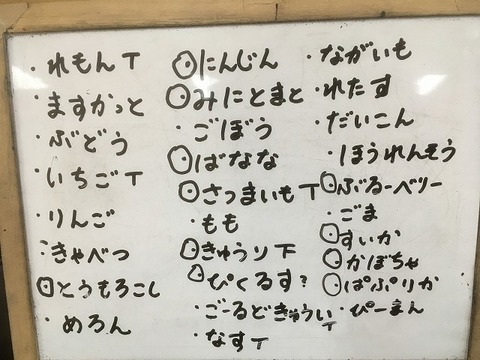 ・れもんT
・ますかっと
・ぶどう
・いちごT
・りんご
・きゃべつ
○とうもろこし
・めろん
○にんじん
○みにとまと
・ごぼう
○ばなな
○さつまいもT
・もも
○きゅうりT
○ぴくるす?
・ごーるどきゅういT
・なすT
・ながいも
・れたす
・だいこん
・ほうれんそう
○ぶるーべりー
・ごま
○すいか
○かぼちゃ
○ぱぷりか
・ぴーまん